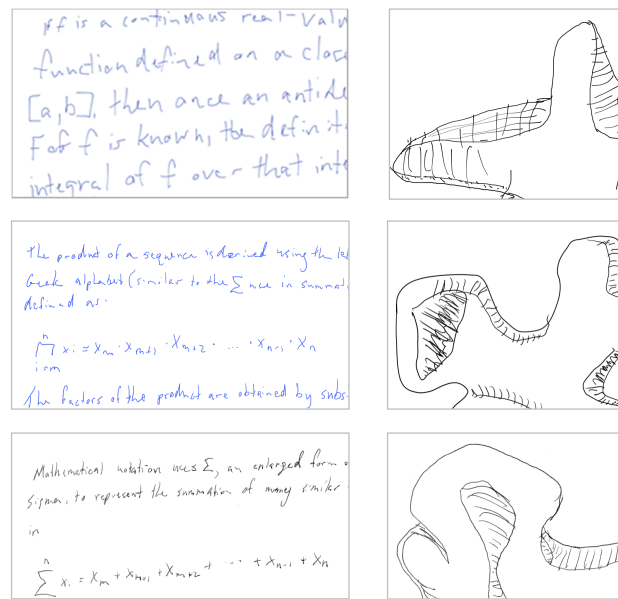 If f is a continuous real-valu
function defined on a close
[a,b], then once an antide
F of f is known, the definit
integral of f over that inte
The product of a sequence is derived using the
Greek alphabet (similar to the ∑ use in summat
defined as:
n
∏ xi = Xm · Xm+1 · Xm+2 · ... · Xn-1 · Xn
i=m
The factors of the product are obtained by subs
Mathematical notation uses ∑, an enlarged form
sigma, to represent the summation of many similar
in
n
∑ xi = Xm + Xm+1 + Xm+2 + ... + Xn-1 + Xn